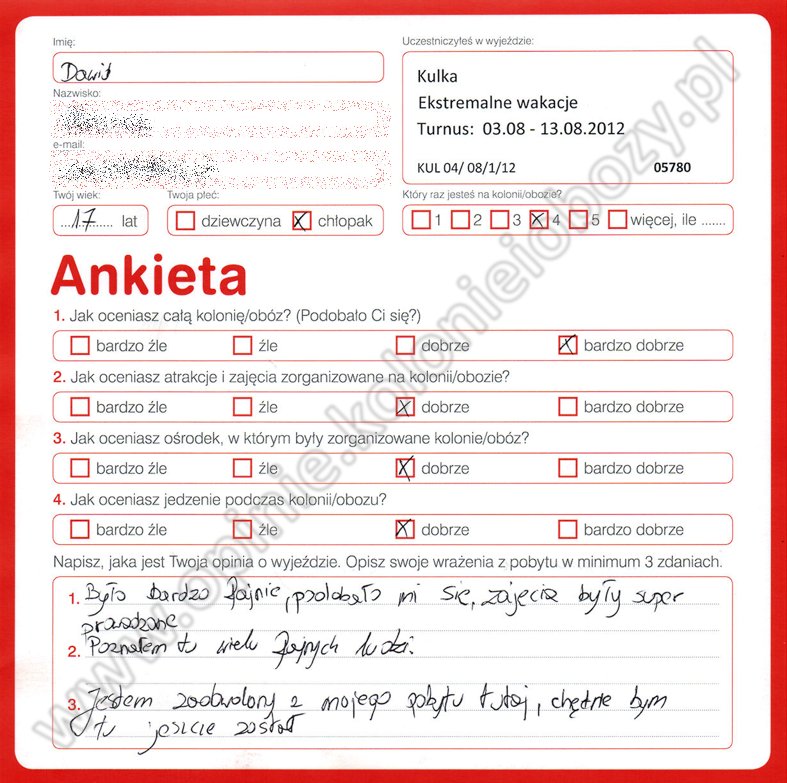 Imię:
Dawid
Nazwisko:
e-mail:
Twój wiek:
17 lat
Twoja płeć:
dziewczyna chłopak
Uczestniczyłeś w wyjeździe:
Kulka
Ekstremalne wakacje
Turnus: 03.08 - 13.08.2012
KUL 04/ 08/1/12 05780
Który raz jesteś na kolonii/obozie?
1 2 3 4 5 więcej, ile .......
Ankieta
1. Jak oceniasz całą kolonię/obóz? (Podobało Ci się?)
bardzo źle źle dobrze bardzo dobrze
2. Jak oceniasz atrakcje i zajęcia zorganizowane na kolonii/obozie?
bardzo źle źle dobrze bardzo dobrze
3. Jak oceniasz ośrodek, w którym były zorganizowane kolonie/obóz?
bardzo źle źle dobrze bardzo dobrze
4. Jak oceniasz jedzenie podczas kolonii/obozu?
bardzo źle źle dobrze bardzo dobrze
Napisz, jaka jest Twoja opinia o wyjeździe. Opisz swoje wrażenia z pobytu w minimum 3 zdaniach.
1. Było bardzo fajnie, podobało mi się, zajęcia były super
prowadzone
2. Poznałem tu wielu fajnych ludzi.
3. Jestem zadowolony z mojego pobytu tutaj, chętnie bym
tu jeszcze został
www.opinie.kolonieiobozy.pl